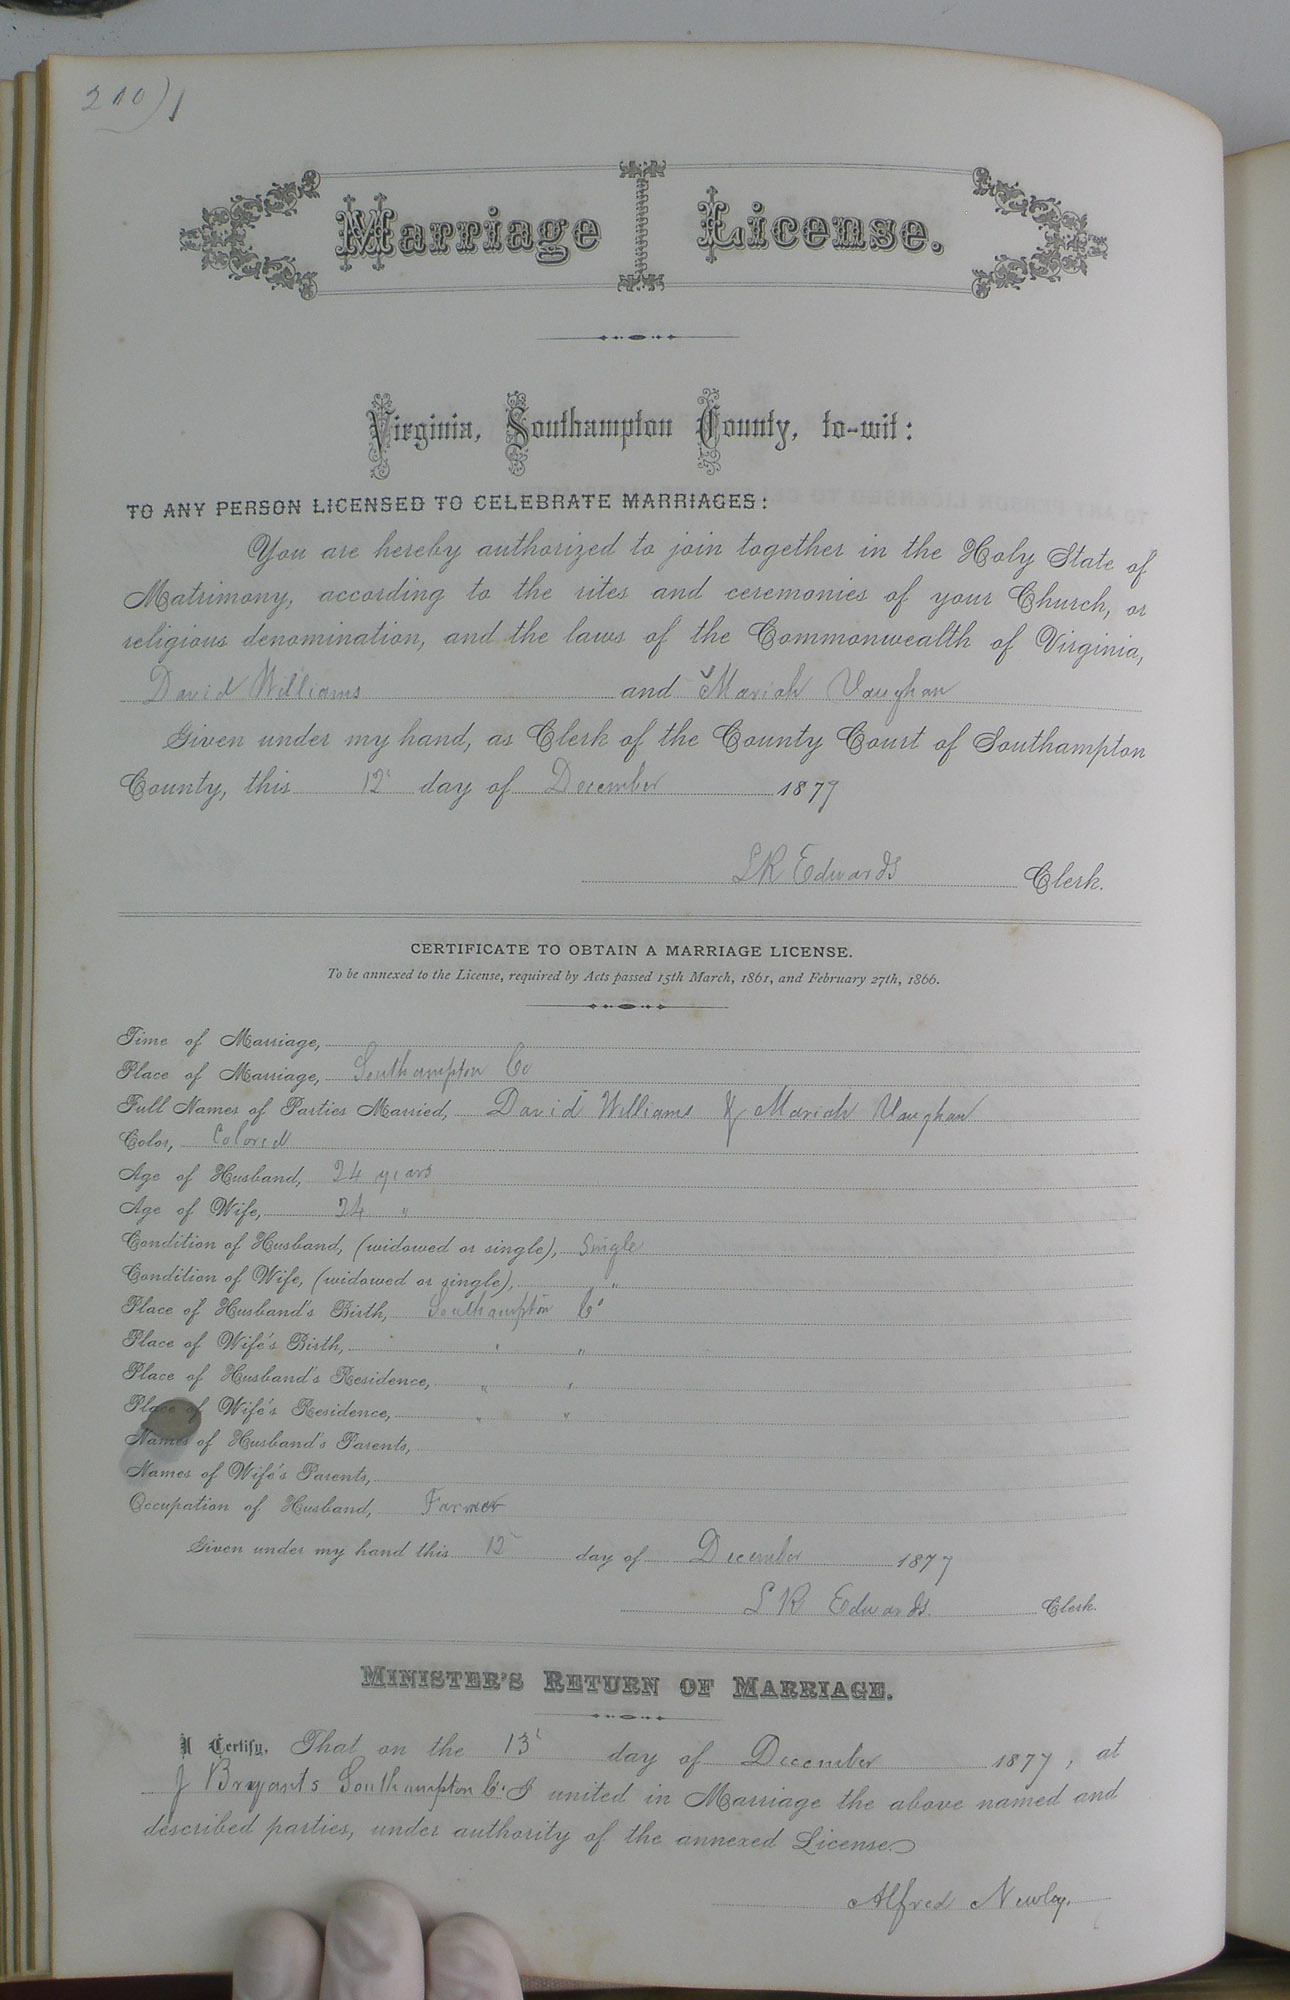 210)
Marriage License.
Virginia, Southampton County, to-wit:
TO ANY PERSON LICENSED TO CELEBRATE MARRIAGES:
You are hereby authorized to join together in the Holy State of
Matrimony, according to the rites and ceremonies of your Church, or
religious denomination, and the laws of the Commonwealth of Virginia,
David Williams and Mariah Vaughan
Given under my hand, as Clerk of the County Court of Southampton
County, this 12 day of December 1877
L R Edwards Clerk.
CERTIFICATE TO OBTAIN A MARRIAGE LICENSE.
To be annexed to the License, required by Acts passed 15th March, 1861, and February 27th, 1866.
Time of Marriage,
Place of Marriage, Southampton Co
Full Names of Parties Married, David Williams & Mariah Vaughan
Color, Colored
Age of Husband, 24 years
Age of Wife, 24 "
Condition of Husband, (widowed or single), Single
Condition of Wife, (widowed or single), "
Place of Husband's Birth, Southampton Co
Place of Wife's Birth, " "
Place of Husband's Residence, " "
Place of Wife's Residence, " "
Names of Husband's Parents,
Names of Wife's Parents,
Occupation of Husband, Farmer
Given under my hand this 12 day of December 1877
L R Edwards Clerk.
MINISTER'S RETURN OF MARRIAGE.
I Certify, That on the 13 day of December 1877, at
J Bryants Southampton Co I united in Marriage the above named and
described parties, under authority of the annexed License.
Alfred Newby.